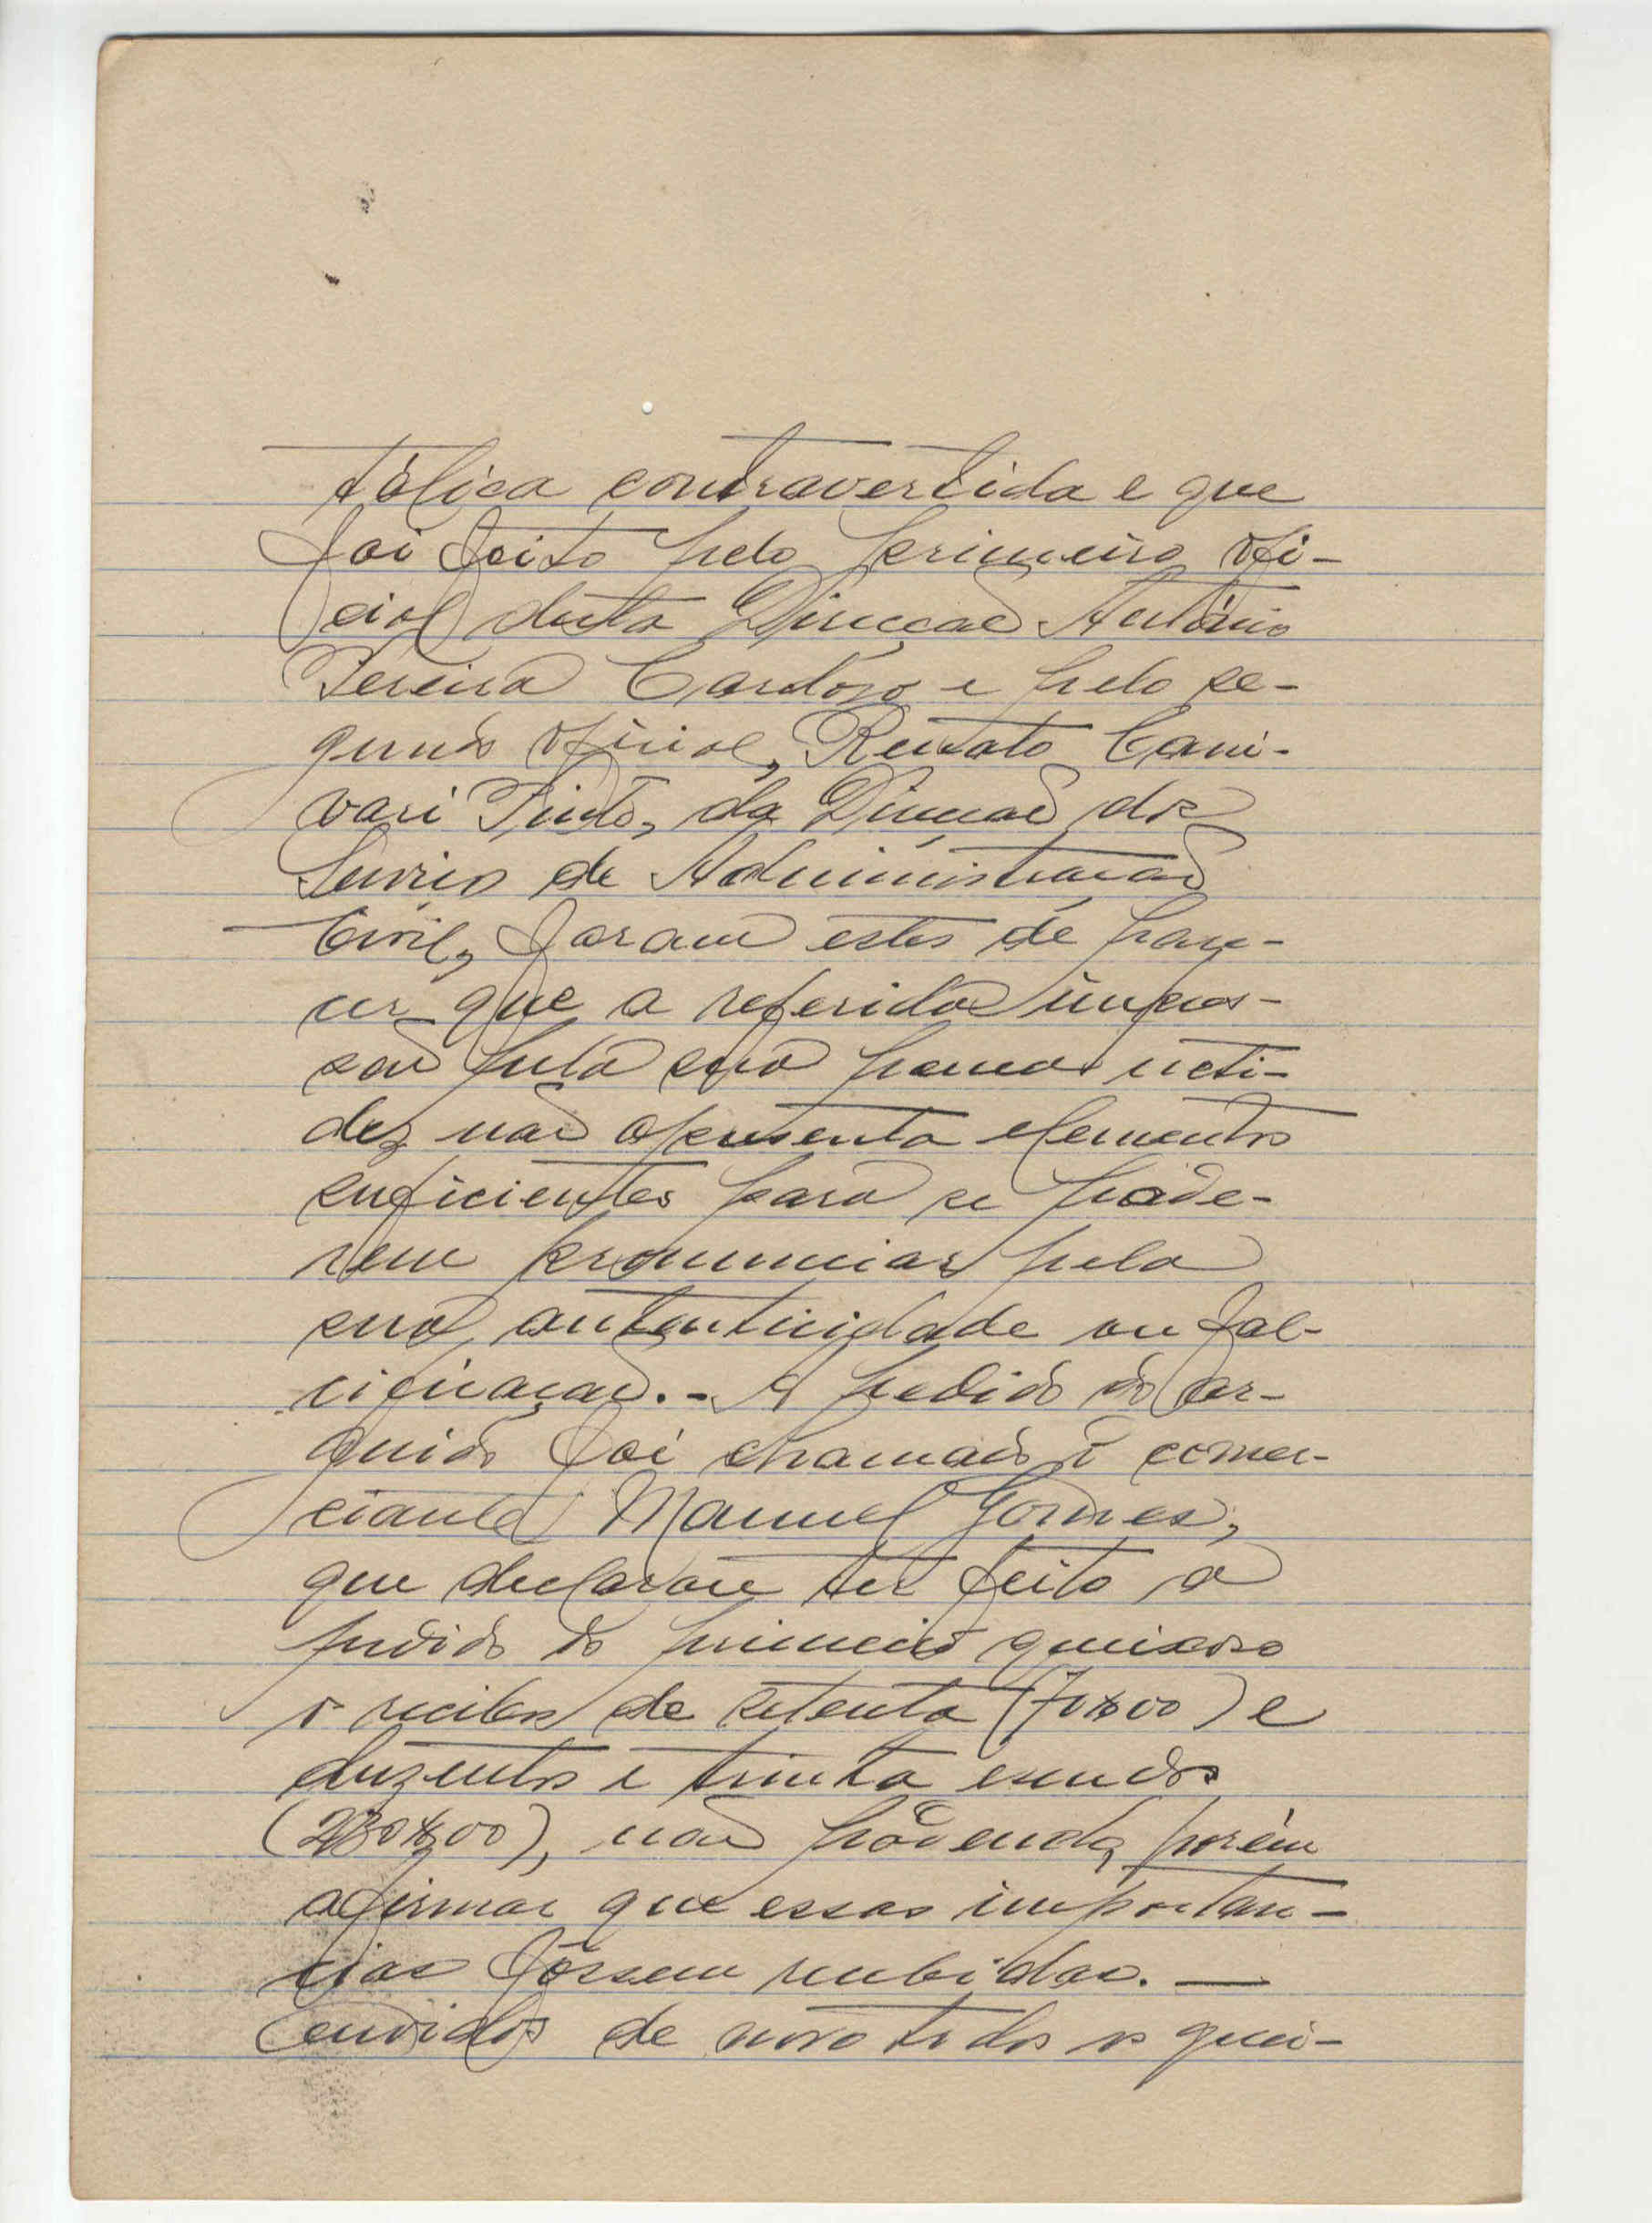 tálica contravertida e que
foi feito pelo primeiro ofi-
cial desta Direcção António
Pereira Cardoso e pelo se-
gundo oficial, Renato Cani-
vari Pinto, da Direcção dos
Serviços de Administração
Civil, foram estes de pare-
cer que a referida impres-
são pela sua pouca niti-
dez não apresenta elementos
suficientes para se pode-
rem pronunciar pela
sua autenticidade ou fal-
cificação. - A pedido do ar-
guido foi chamado o comer-
ciante Manuel Gomes,
que declarou ter feito a
pedido do primeiro queixoso
os recibos de setenta (70$00) e
duzentos e trinta escudos
(230$00), não podendo, porém
afirmar que essas importan-
cias fôssem recebidas. —
Ouvidos de novo todos os quei-